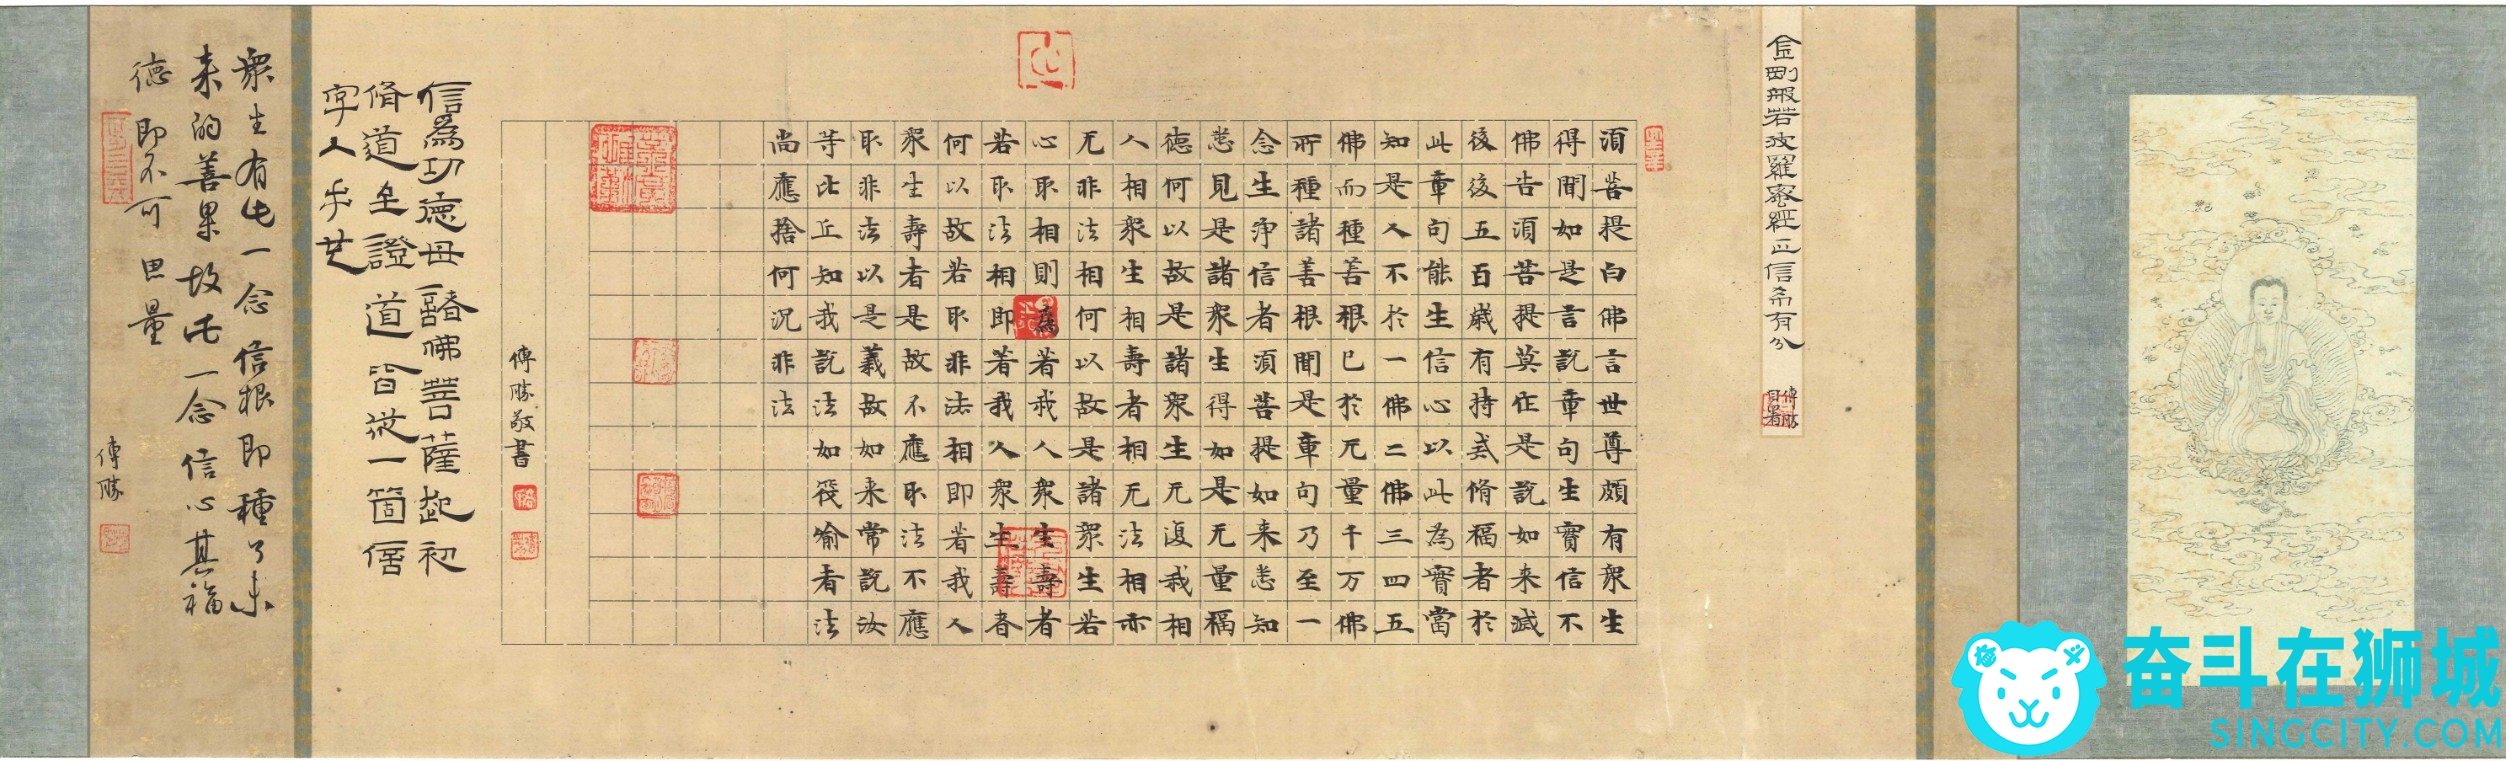 金剛般若波羅蜜經正信希有分
傅勝
自署
須菩提白佛言世尊頗有眾生
得聞如是言說章句生實信不
佛告須菩提莫作是說如来滅
後後五百歲有持戒脩福者於
此章句能生信心以此為實當
知是人不於一佛二佛三四五
佛而種善根已於无量千万佛
所種諸善根聞是章句乃至一
念生淨信者須菩提如来悉知
悉見是諸眾生得如是无量福
德何以故是諸眾生无復我相
人相眾生相壽者相无法相亦
无非法相何以故是諸眾生若
心取相則為著我人眾生壽者
若取法相即著我人眾生壽者
何以故若取非法相即著我人
眾生壽者是故不應取法不應
取非法以是義故如来常說汝
等比丘知我說法如筏喻者法
尚應捨何況非法
傅勝敬書
信為功德母諸佛菩薩起初
脩道至證道皆從一箇信
字入手
眾生有此一念信根即種了未
来的善果故此一念信心其福
德即不可思量
傅勝
奋斗在狮城
SINGCITY.COM